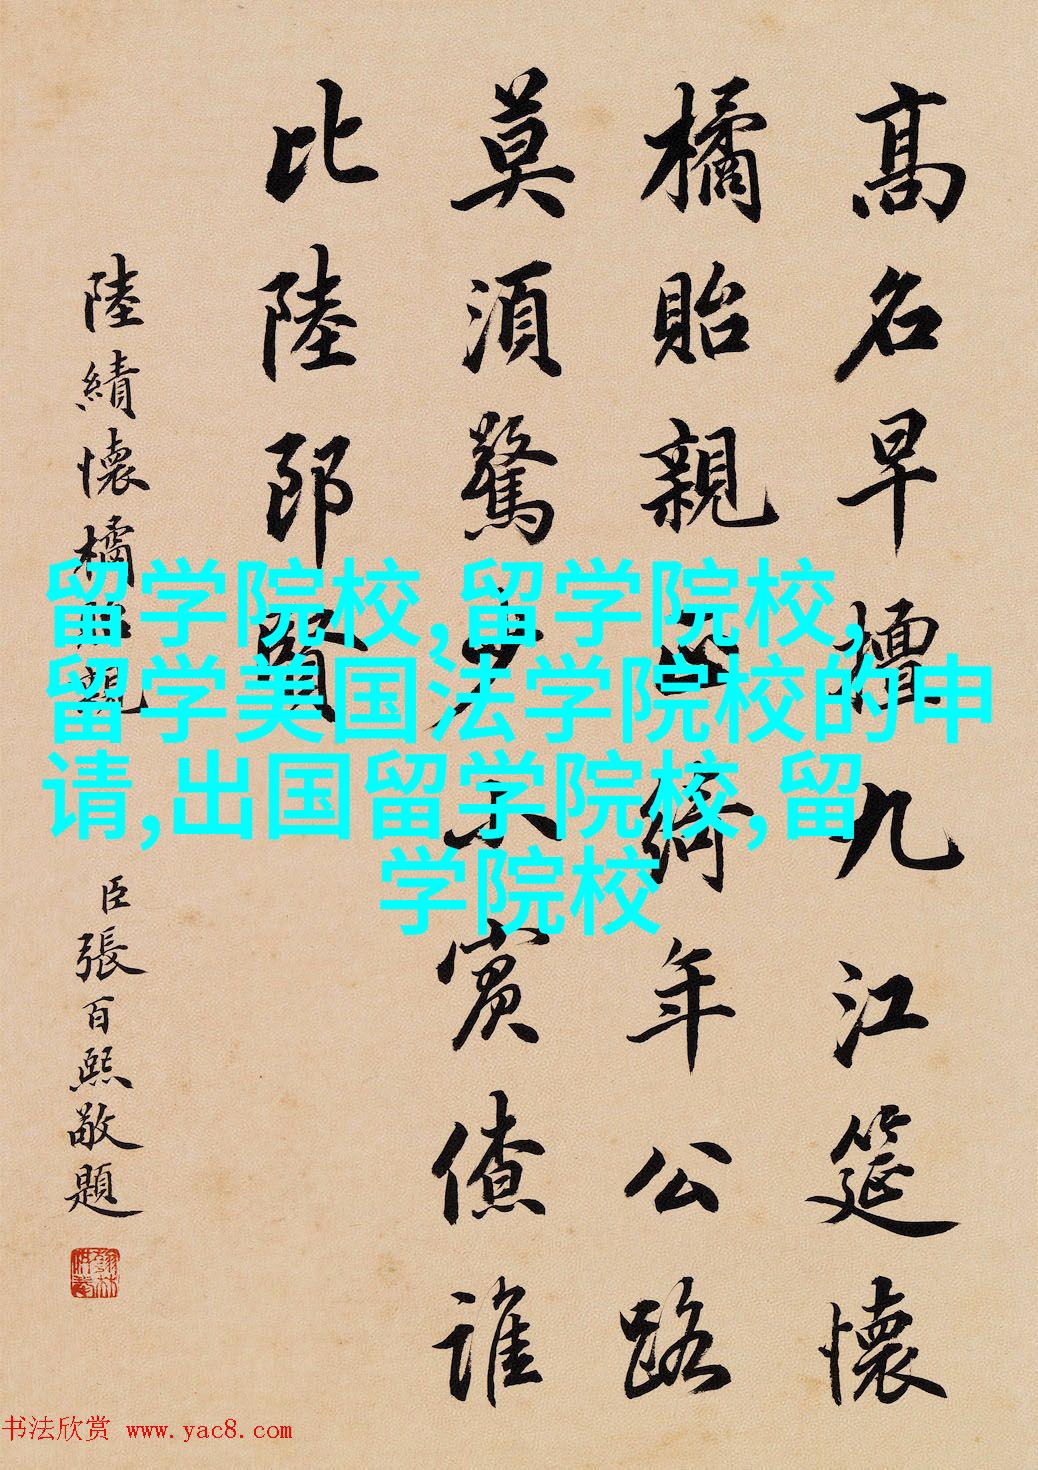 高名早擅九江筵懷
橘貽親正綺年公路
莫須驚少小賓僚誰
比陸郎賢
陸績懷橘貽親
臣張百熙敬題
翰林供奉
留学院校,留学院校,
留学美国法学院校的申
请,出国留学院校,留
学院校
书法欣赏 www.yac8.com